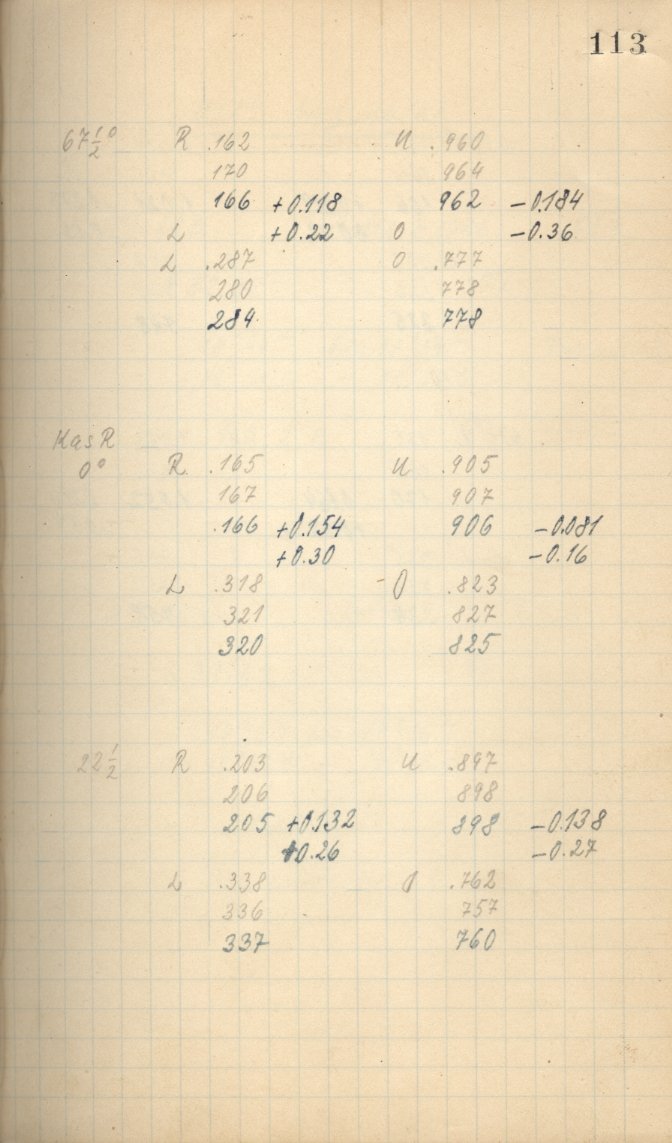 113
67½° R .162 U .960
170 964
166 +0.118 962 -0.184
L +0.22 O -0.36
L .287 O .777
280 778
284 778
Kas R
0° R .165 U .905
167 907
.166 +0.154 906 -0.081
+0.30 -0.16
L .318 O .823
321 827
320 825
22½ R .203 U .897
206 898
205 +0.132 898 -0.138
+0.26 -0.27
L .338 O .762
336 757
337 760